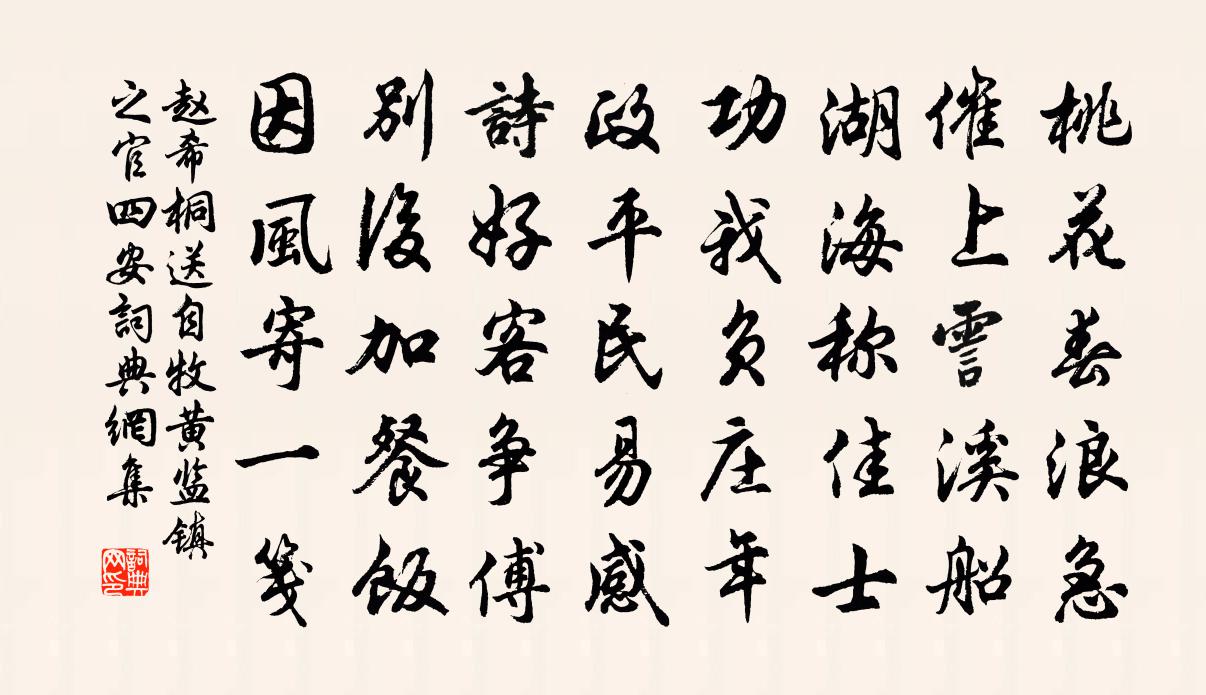 桃花春浪急
催上霅溪船
湖海称佳士
功我负庄年
政平民易感
詩好客争傅
别後加餐飯
因風寄一箋
赵希桐送自牧黄监镇
之官四安詞典網集
詞典网印